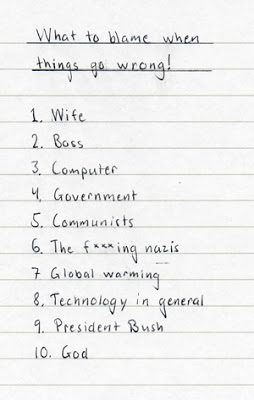 What to blame when
things go wrong!
1. Wife
2. Boss
3. Computer
4. Government
5. Communists
6. The f***ing nazis
7 Global warming
8. Technology in general
9. President Bush
10. God